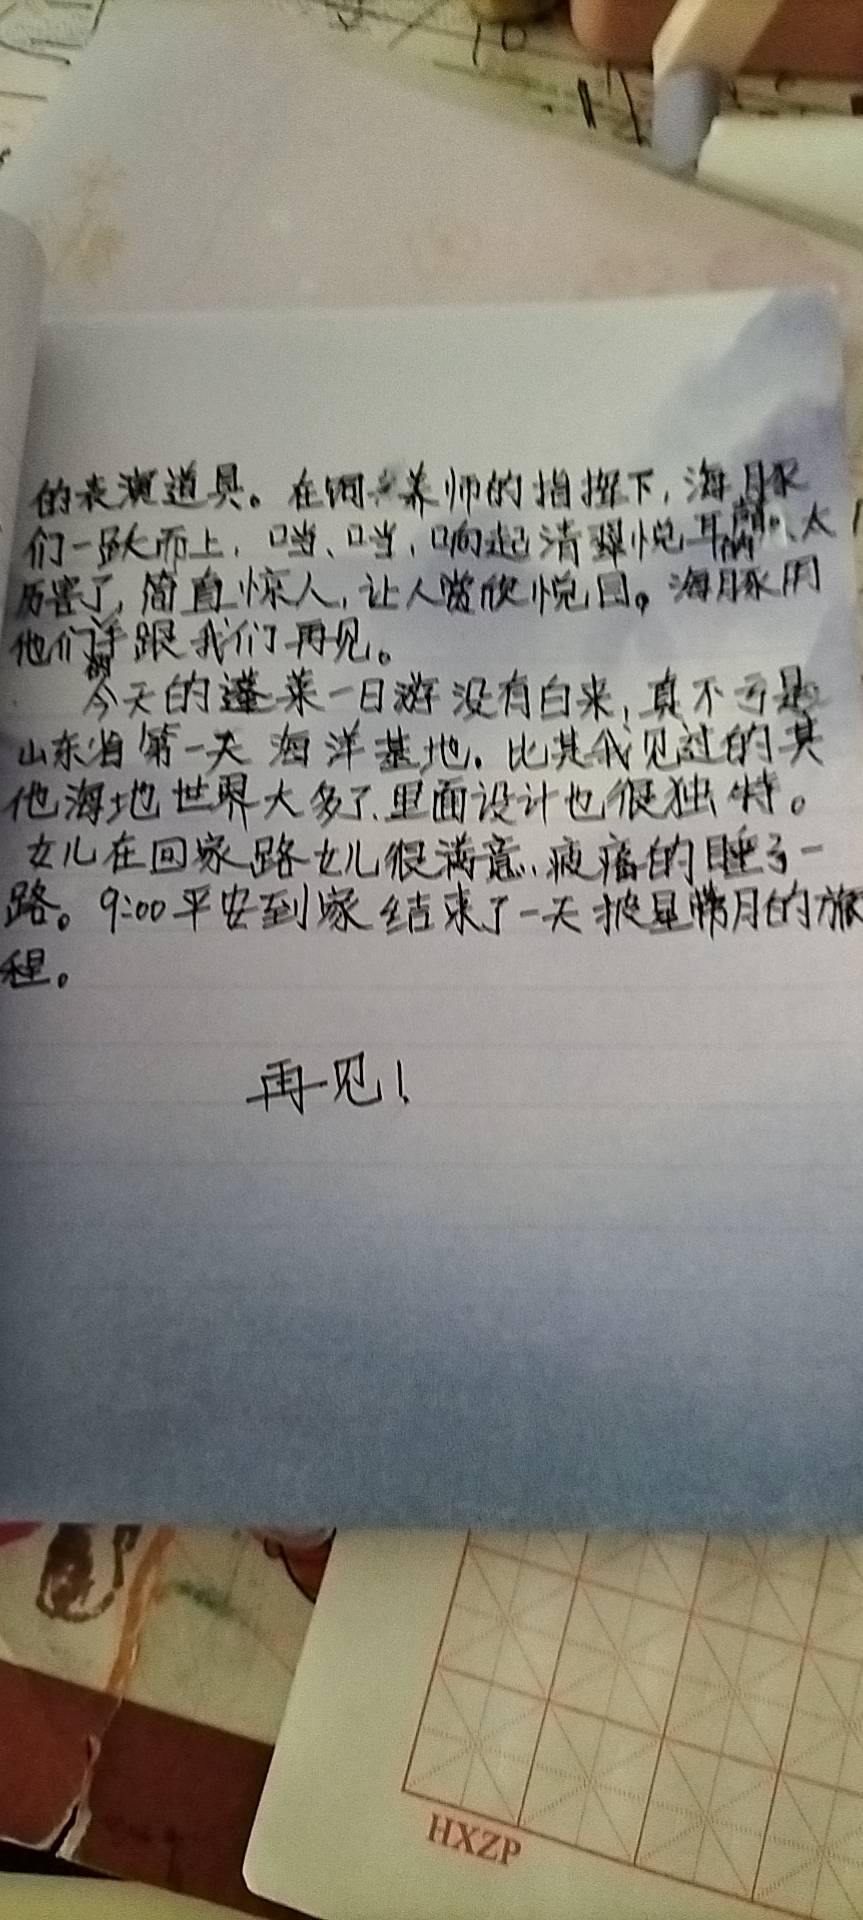 10
的表演道具。在饲养师的指挥下,海豚
们一跃而上,口当、口当,响起清翠悦耳的、太
厉害了,简直惊人,让人赏欣悦目。海豚用
他们的手跟我们再见。
今天的蓬莱一日游没有白来,真不亏是
山东省第一大海洋基地。比其我见过的其
他海地世界大多了、里面设计也很独特。
女儿在回家路女儿很满意、疲惫的睡了一
路。9:00平安到家结束了一天披星带月的旅
程。
再见!
HXZP